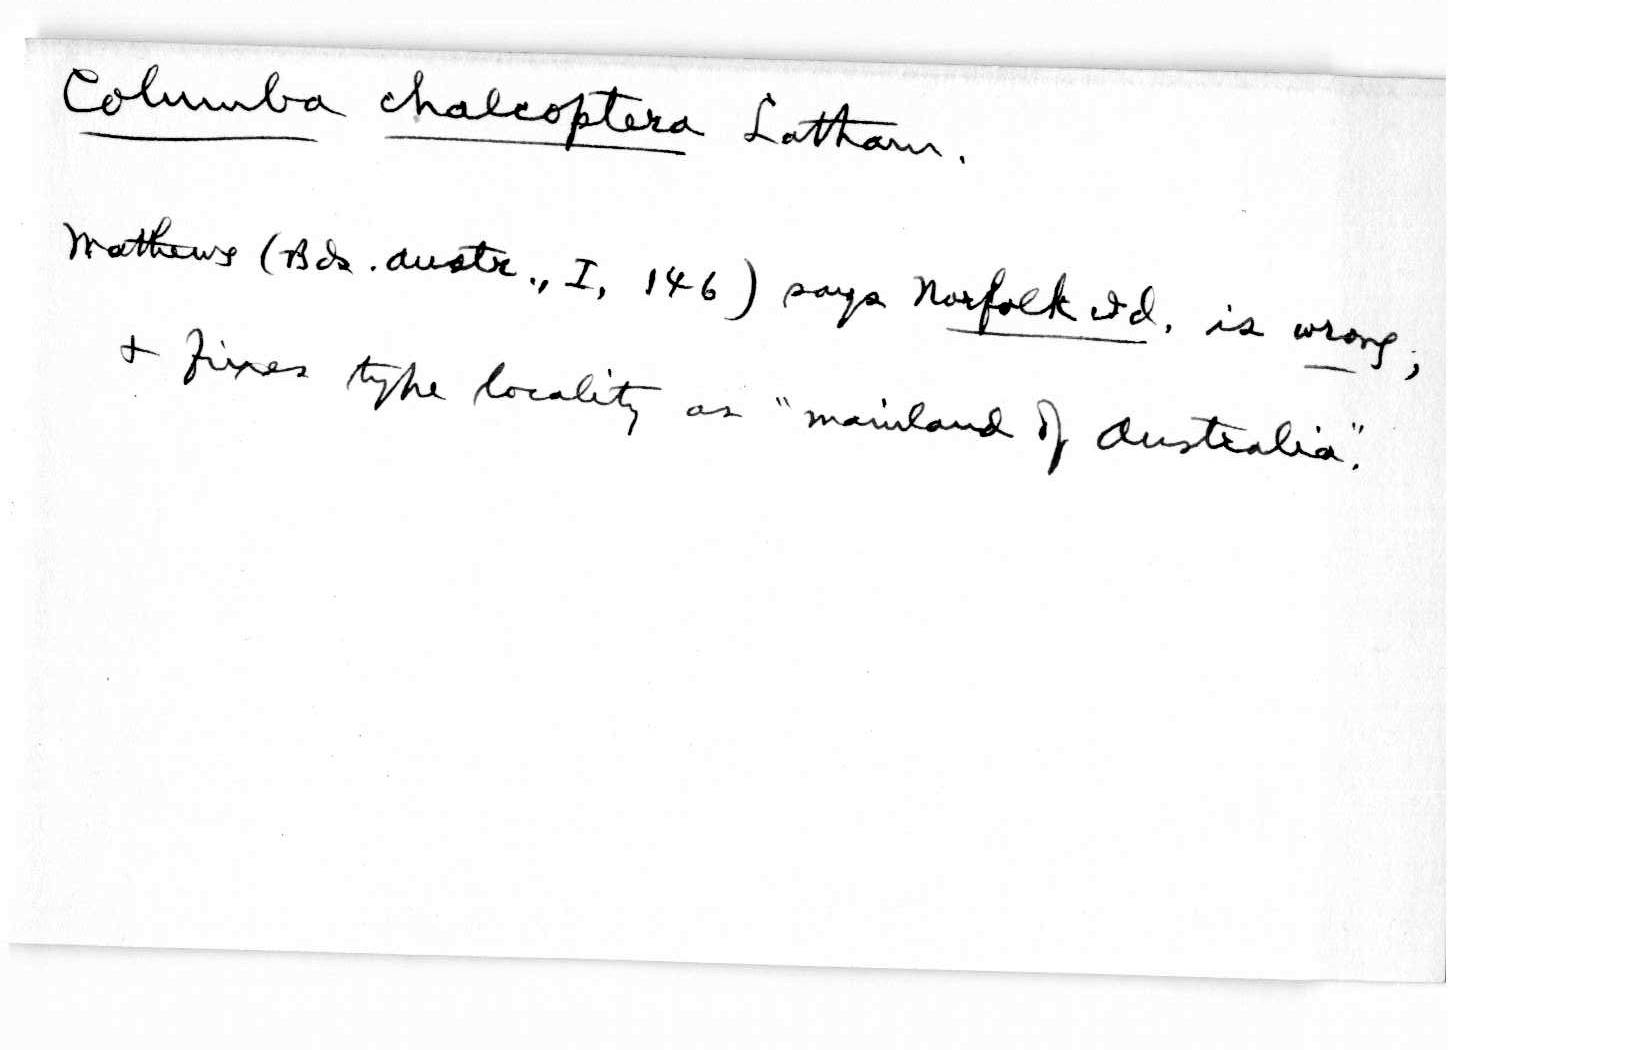 Columba chalcoptera Latham.
Mathews (Bds. Austr., I, 146) says Norfolk Id. is wrong;
+ fixes type locality as "mainland of Australia".